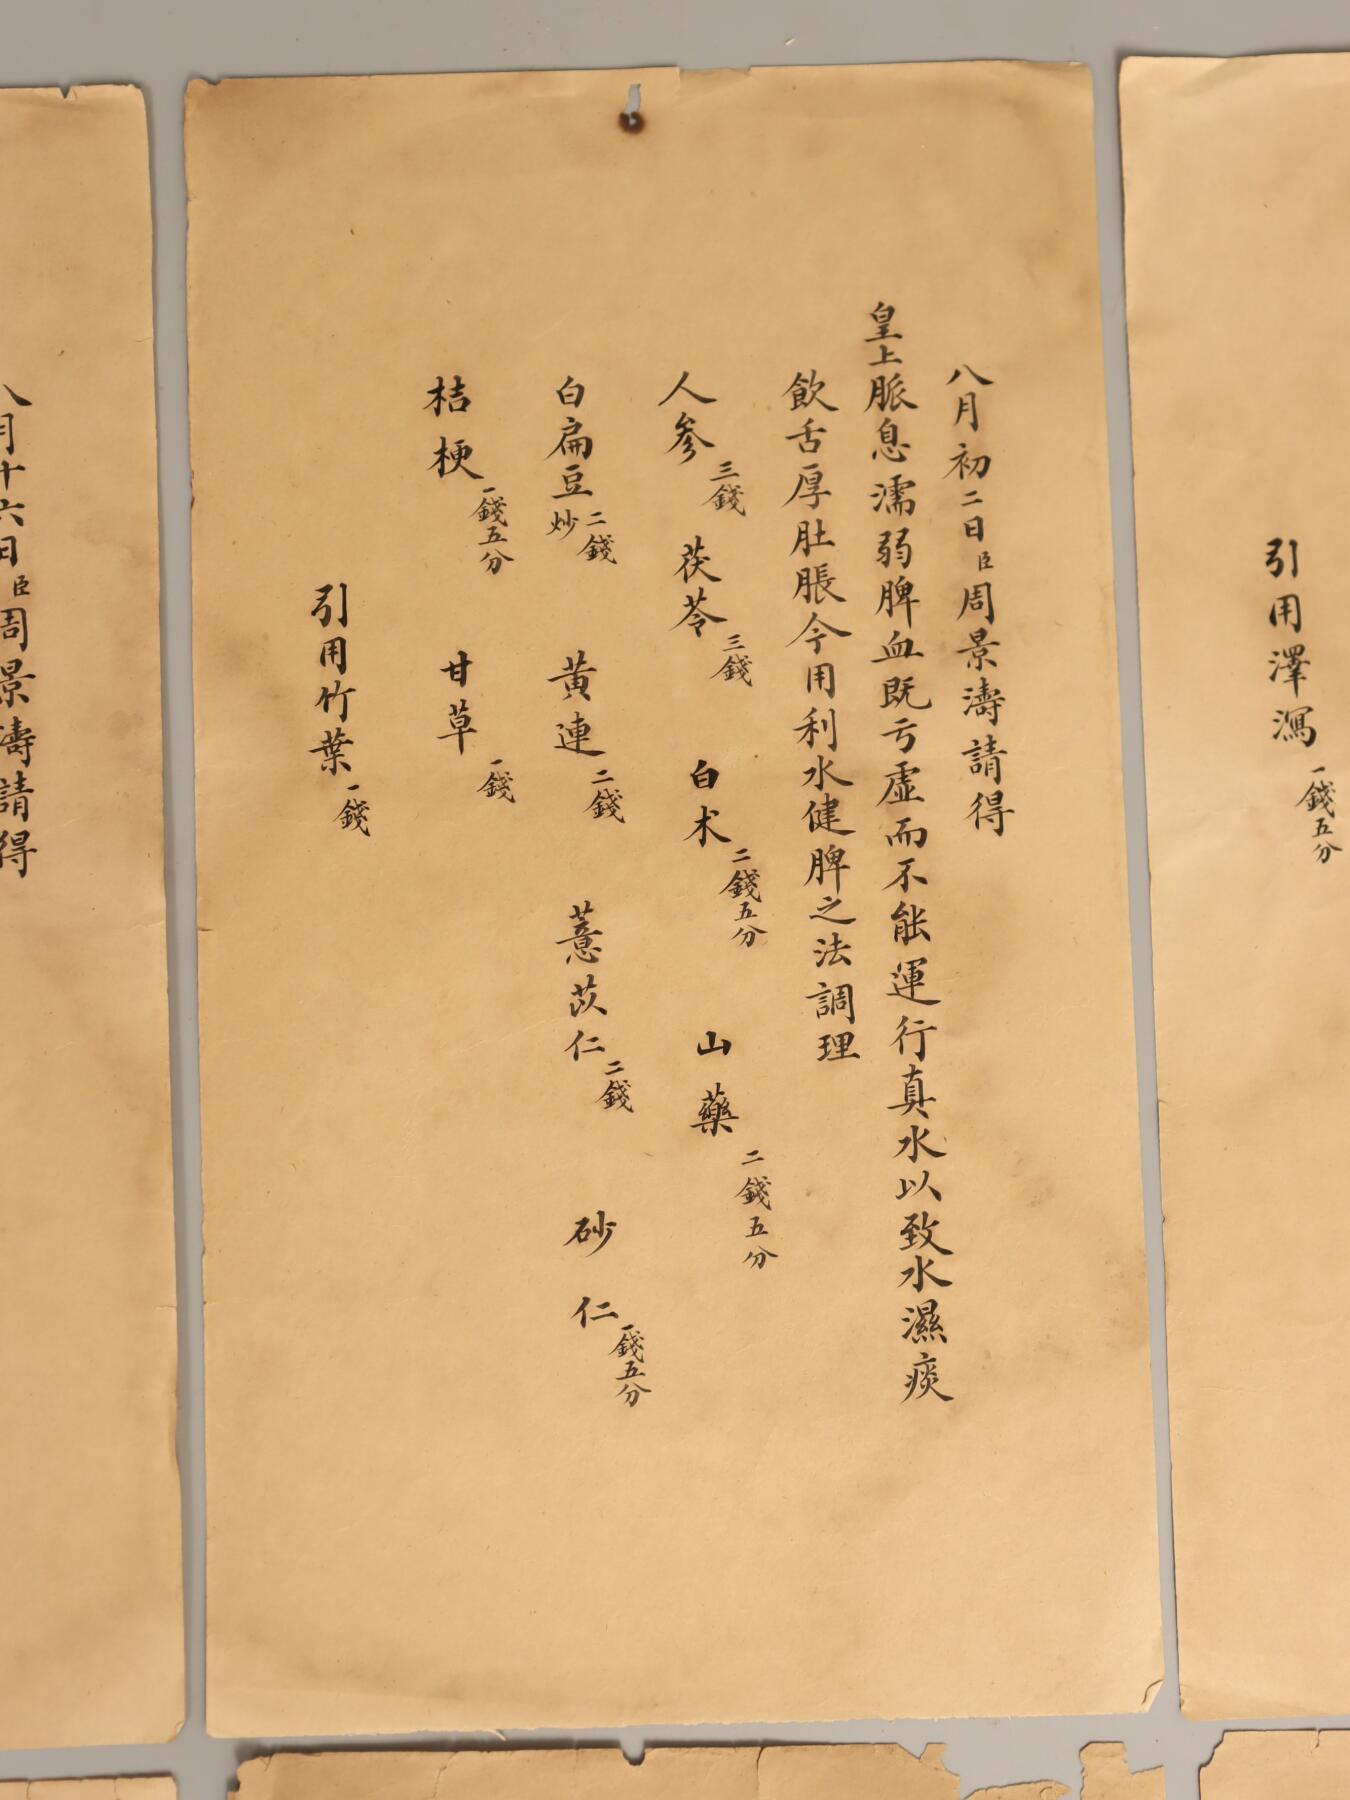 引用澤瀉一錢五分
八月初二日臣周景濤請得
皇上脈息濡弱脾血既亏虛而不能運行真水以致水濕痰
飲舌厚肚脹今用利水健脾之法調理
人參三錢 茯苓三錢 白朮二錢五分 山藥二錢五分
白扁豆炒二錢 黃連二錢 薏苡仁二錢 砂仁一錢五分
桔梗一錢五分 甘草一錢
引用竹葉一錢
八月十六日臣周景濤請得